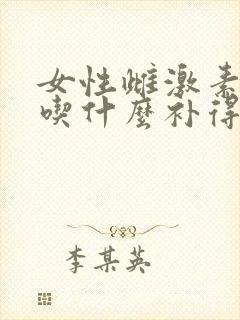 女性雌激素
喫什麼补得
李某英